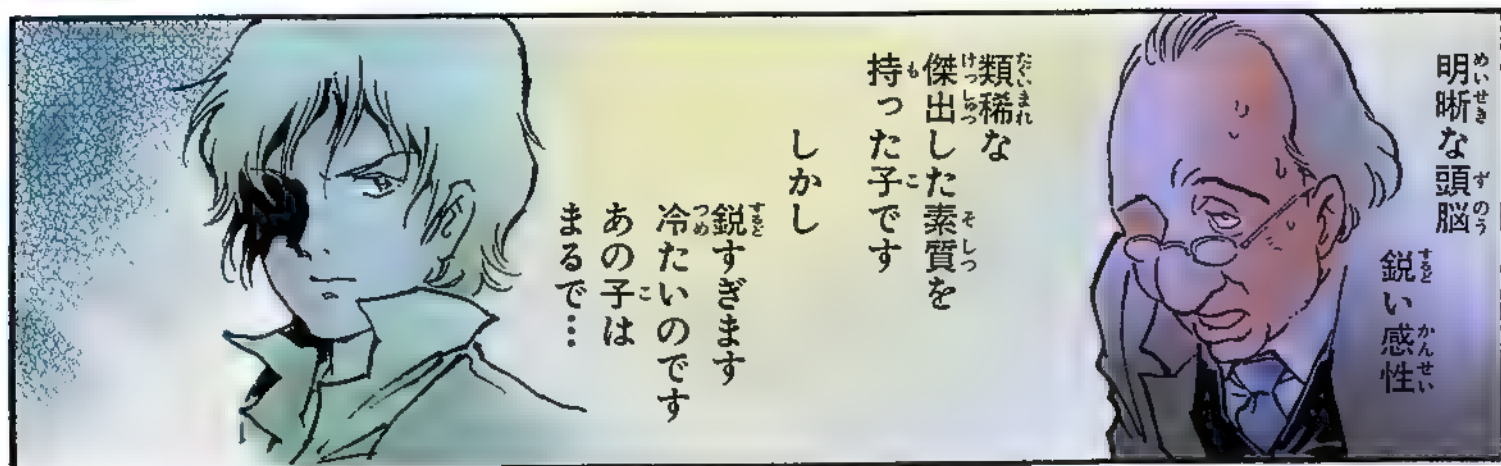 明晰な頭脳
鋭い感性
類稀な
傑出した素質を
持った子です
しかし
鋭すぎます
冷たいのです
あの子は
まるで…